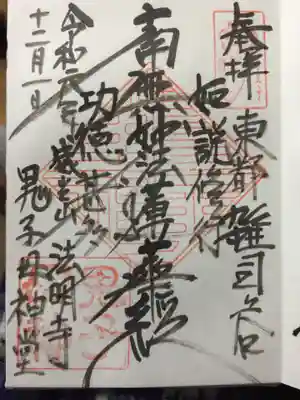 奉拝 東都 雑司ヶ谷
如説修行
南無妙法蓮華経
功徳甚多
威光山 法明寺
鬼子母神堂
令和元年
十二月一日